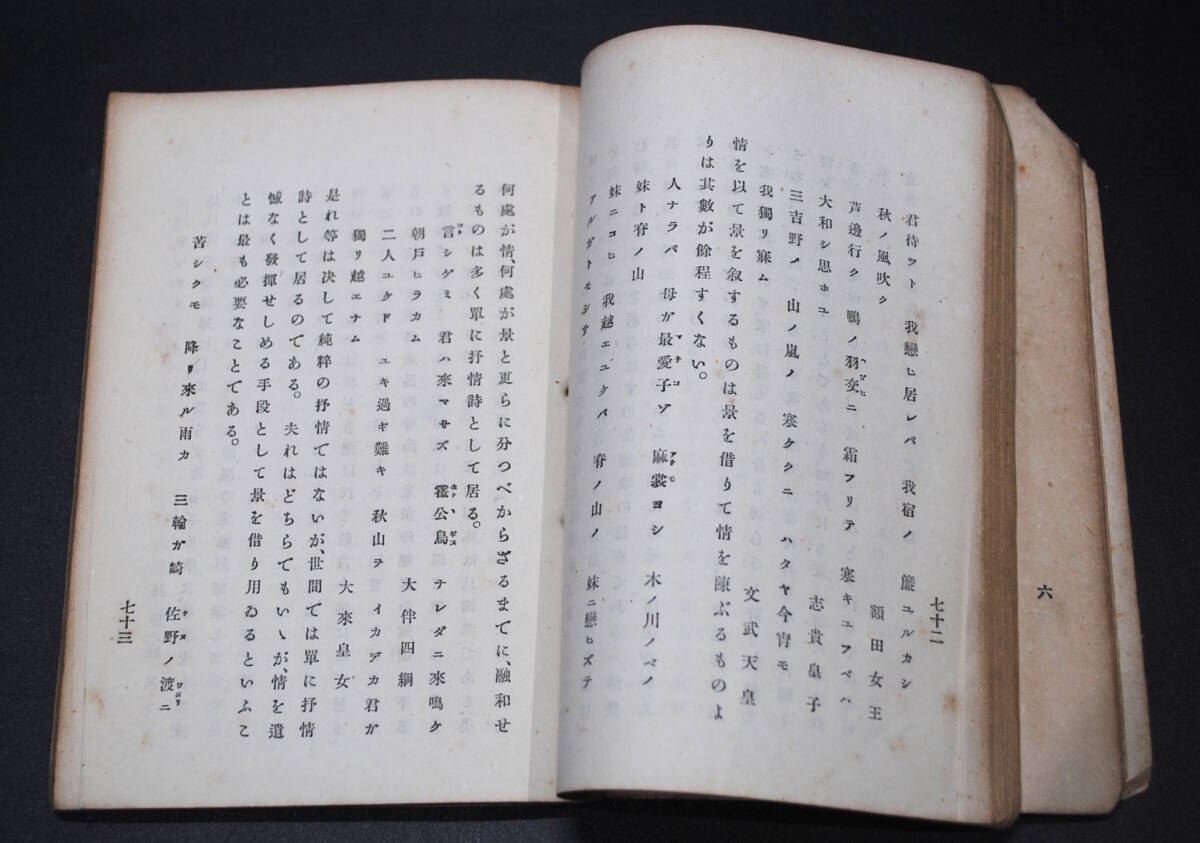 七十二
額田女王
君待ツト　我戀ヒ居レバ　我宿ノ　簾ユルカシ
秋ノ風吹ク
志貴皇子
芦邊行クの鴨ノ羽変ニ　霜フリテ　寒キユフベハ
大和シ思ホユ
三吉野ノ　山ノ嵐ノ　寒クタクニ　ハタヤ今宵モ
我獨リ寐ム
文武天皇
情を以て景を敘するものは景を借りて情を陳ぶるものよ
りは其數が餘程すくない。
人ナラバ　母ガ最愛子ゾ　麻裳ヨシ　木ノ川ノベノ
妹ト脊ノ山
妹ニコヒ　我越エユケバ　脊ノ山ノ　妹ニ戀ヒズテ
アルガトモシサ
何處が情、何處が景と更らに分つべからざるまでに、融和せ
るものは多く單に抒情詩として居る。
言シゲミ　君ハ來マサズ　霍公鳥　ナレダニ來鳴ケ
朝戸ヒラカム
大伴四綱
二人ユケド　ユキ過ギ難キ　秋山ヲ　イカデカ君ガ
獨リ越エナム
大來皇女
是れ等は決して純粹の抒情ではないが、世間では單に抒情
詩として居るのである。夫れはどちらでもいゝが、情を遺
憾なく發揮せしめる手段として景を借り用ゐるといふこ
とは最も必要なことである。
苦シクモ　降リ來ル雨カ　三輪ガ崎　佐野ノ渡ニ
七十三
六